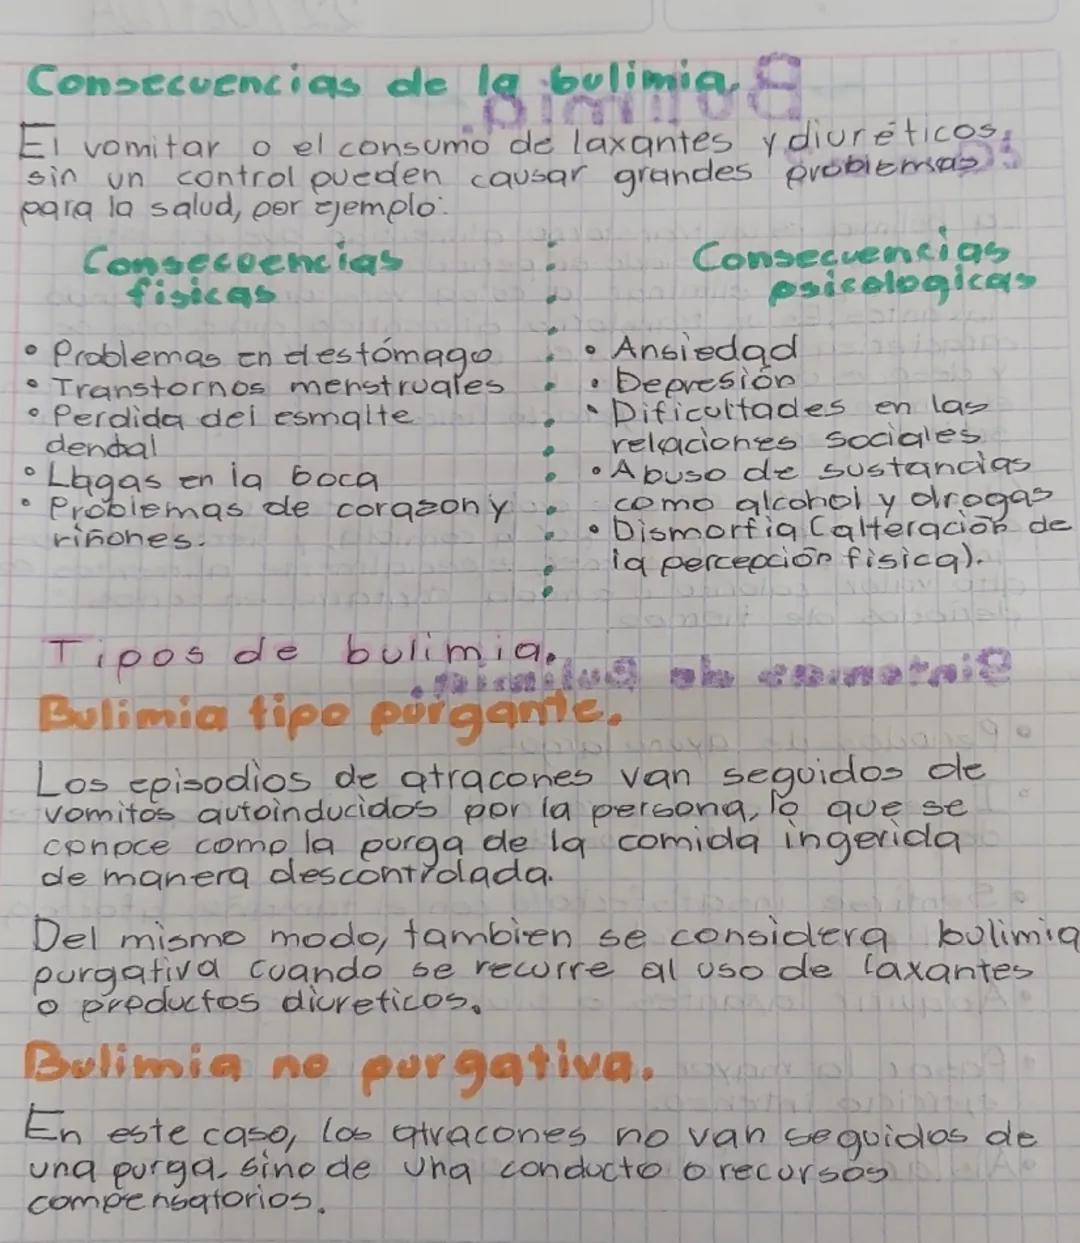 Consecuencias de la bulimia.
El vomitar o el consumo de laxantes y diuréticos,
sin un control pueden causar grandes problemas
para la salud, por ejemplo:
Consecuencias
fisicas
• Problemas en el estómago
• Transtornos menstruales
• Perdida del esmalte
dental
• Llagas en la boca
• Problemas de corazon y
riñones.
Consecuencias
psicologicas
• Ansiedad
• Depresión
• Dificultades en las
relaciones sociales
• Abuso de sustancias
como alcohol y drogas
• Dismorfia (alteración de
la percepción fisica).
Tipos de bulimia.
Bulimia tipo purgante.
Los episodios de atracones van seguidos de
vomitos autoinducidos por la persona, lo que se
conoce como la purga de la comida ingerida
de manera descontrolada.
Del mismo modo, tambien se considera bulimia
purgativa cuando se recurre al uso de laxantes
o productos diureticos.
Bulimia no purgativa.
En este caso, los atracones no van seguidos de
una purga, sino de una conducto o recursos
compensatorios.